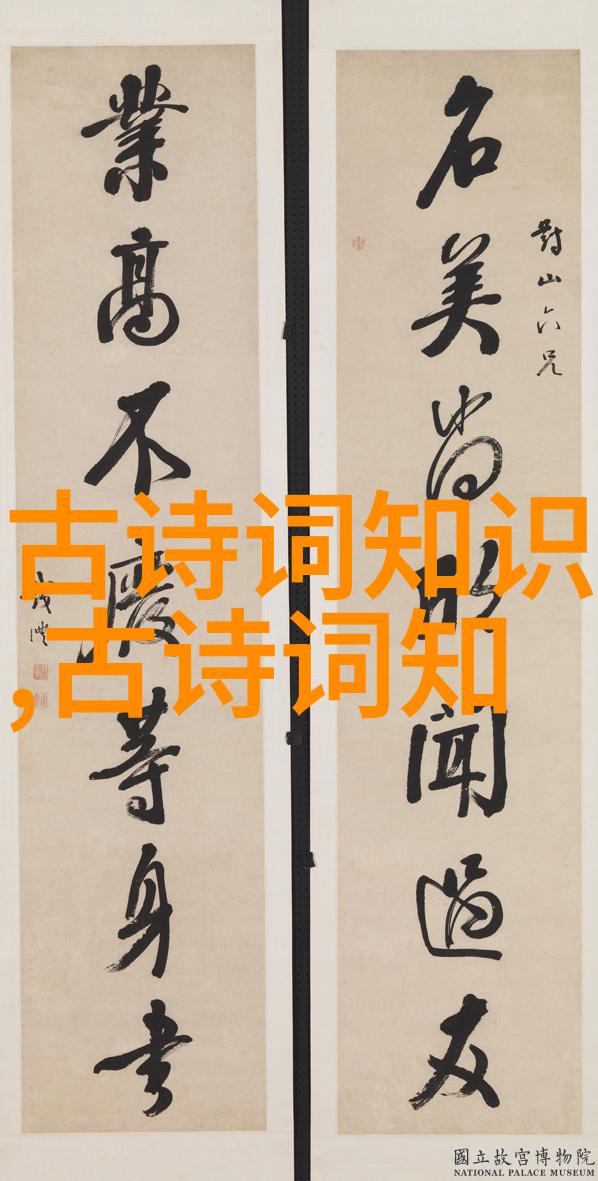 對山六兄
名美尚欣聞過友
業高不廢等身書
古诗词知识
,古诗词知
國立故宮博物院
NATIONAL PALACE MUSEUM